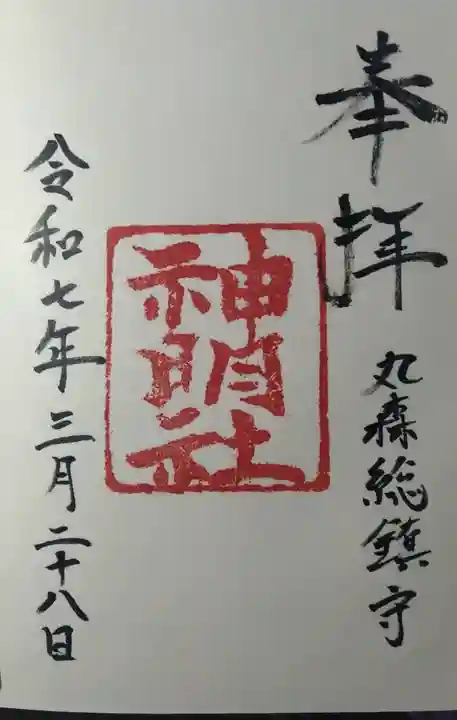 奉拝
丸森総鎮守
神明社
令和七年三月二十八日